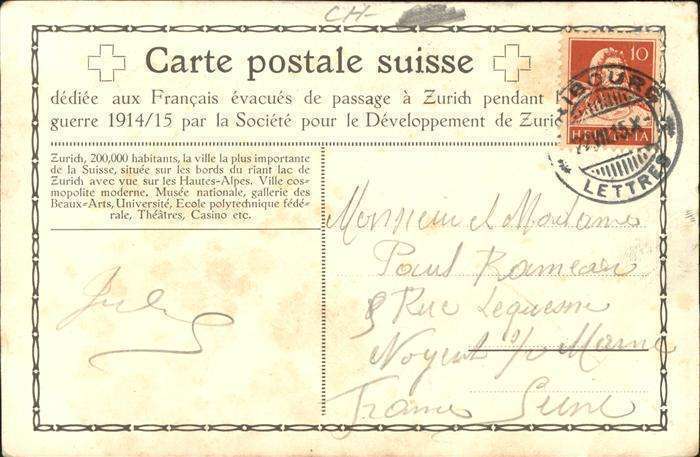 CH-
Carte postale suisse
dédiée aux Français évacués de passage à Zurich pendant
guerre 1914/15 par la Société pour le Développement de Zuric
10
HELVETIA
FRIBOURG
VII.15.X-
LETTRES
Zurich, 200,000 habitants, la ville la plus importante
de la Suisse, située sur les bords du riant lac de
Zurich avec vue sur les Hautes-Alpes. Ville cos-
mopolite moderne. Musée nationale, gallerie des
Beaux=Arts, Université, Ecole polytechnique fédé-
rale, Théâtres, Casino etc.
Monsieur et Madame
Paul Rameau
8 Rue Lequesne
Nogent s/ Marne
France Seine